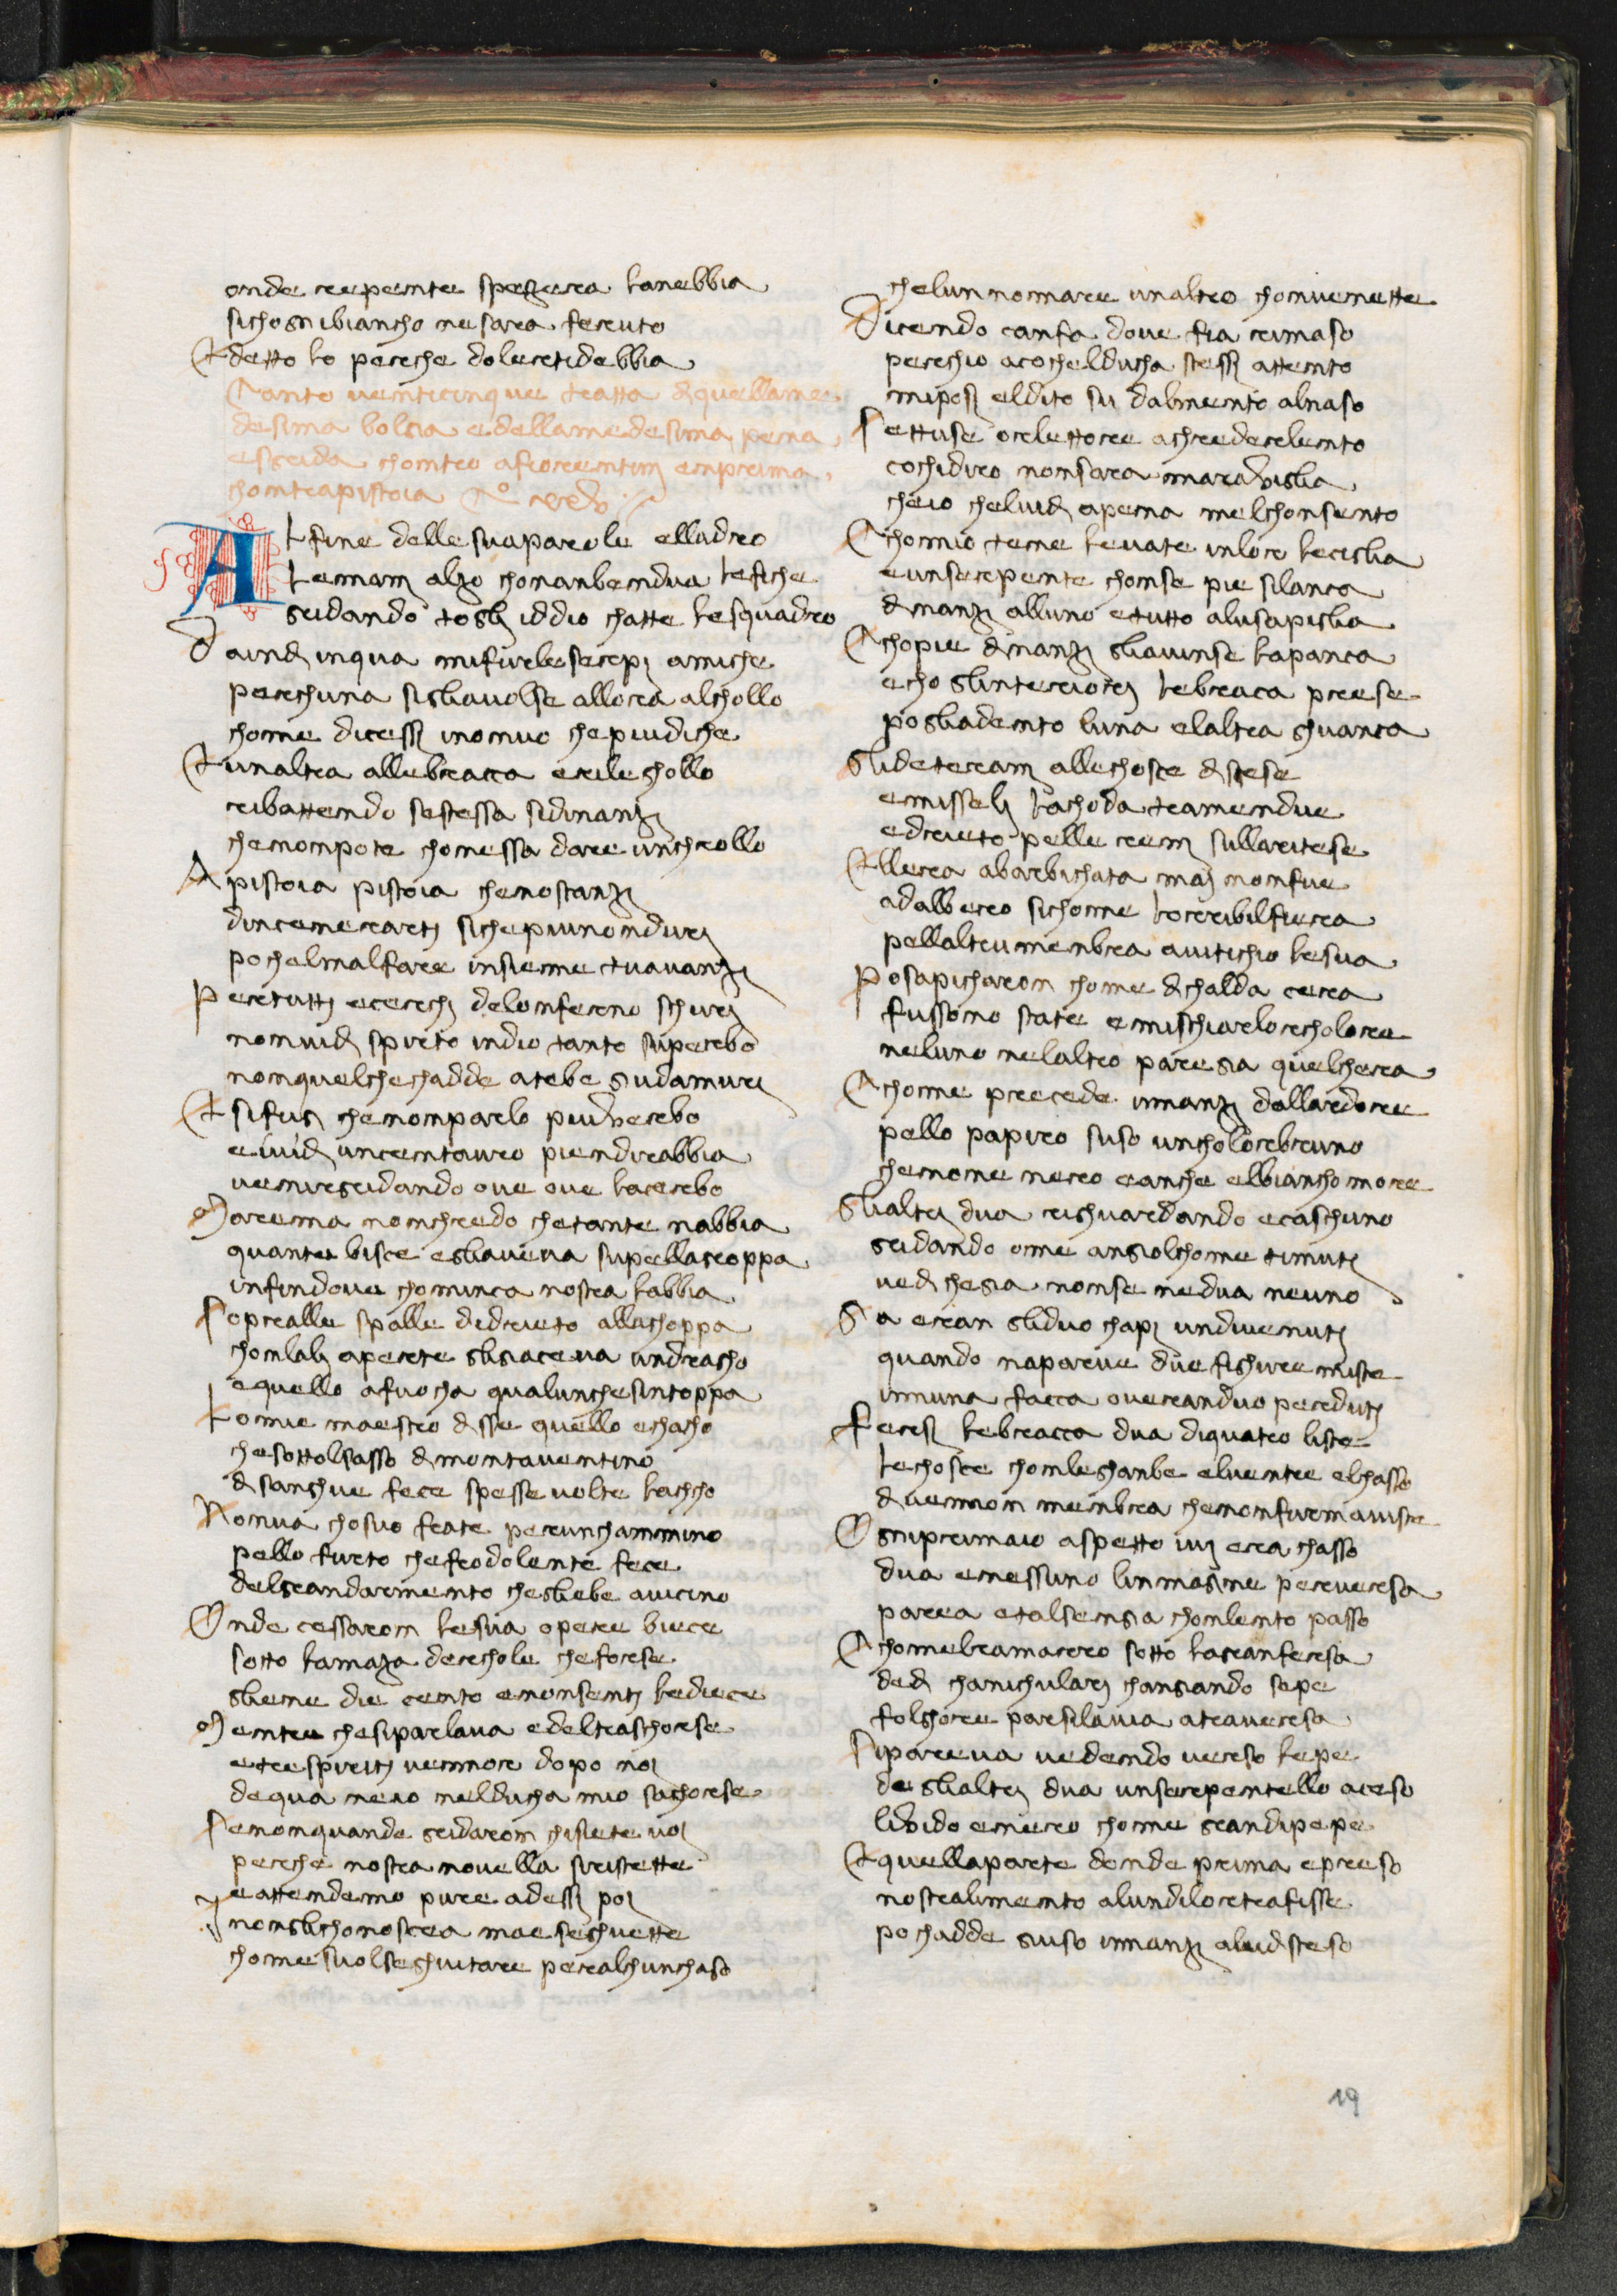 onde repente spezera lanebbia
sichognibiancho nesara feruto
Edetto lo perche doleretidebbia
Canto venticinque tratta diquellame
desima bolgia edellamedesima pena
esgrida chontro afiorentini enprima
chontrapistoia Co xxv
Alfine delle sueparole elladro
lemani alzo chonanbendua lefiche
gridando togli iddio chatte lesquadro
Daindi inqua mifurleserpi amiche
perchuna sigliavolse allora alchollo
chome dicessi inonvo chepiudiche
Eunaltra allebracca erileghollo
ribattendo sestessa sidinanzi
chenonpote chonessa dare unchrollo
A pistoia pistoia chenostanzi
dincenerarti sichepiunonduri
pochelmalfare insieme tuavanzi
Pertutti ecerchi delonferno schuri
nonvidi spirto indio tanto superbo
nonquelchechadde atebe giudamuri
Esifugi chenonparlo piuverbo
eiuidi uncentauro piendirabbia
venirgridando ove ove lacerbo
Marema nonchredo chetante nabbia
quante bisce egliaveva supellagroppa
infindove chominca nostra labbia
Sopralle spalle dedrieto allachoppa
chonlali aperte gligiaceva undracho
equello afuocha qualunchesintoppa
Lomie maestro disse quello echacho
chesottolsasso dimontaventino
disanghue fece spessevolte lachcho
Nonva chosuo frate perunchammino
pello furto chefrodolente fece
delgrandarmento cheglebe avicino
Onde cessaron lesua opere biece
sotto lamaza derchole cheforse
gliene die cento enonsenti lediece
Mentre chesiparlava edeltraschorse
etrespiriti vennor dopo noi
dequa neio nelducha mio sachorse
Senonquande gridaron chisiete voi
perche nostra novella siristette
eattendemo pure adessi poi
I nonglichonoscea mae seghuette
chome suolseghuitare peralchunchaso
chelun nomare unaltro chonvenette
Dicendo canfa dove fia rimaso
perchio acochelducha stessi attento
miposi eldito su dalmento alnaso
Settuse orlettore achrederelento
cochidiro nonsara maraviglia
cheio chelvidi apena melchonsento
Chomio tene levate inlor leciglia
eunserpente chonse pie silanca
dinanzi alluno etutto alusapiglia
Chopie dinanzi gliavinse lapanca
echo glinteriori lebraca prese
pogliadento luna elaltra ghuanca
Glideteriani allechosce distese
emisseli lachoda tramendue
edrieto pelle reni sullaritese
Ellera abarbichata mai nonfue
adalbero sichome lorribilfiera
pellaltrumenbra avitichio lesua
Posapicharon chome dichalda cera
fussono state emischiarlorcholore
neluno nelaltro paregia quelchera
Chome precede innanzi dallardore
pello papiro suso uncholorbruno
chenone nero eanche elbianchomore
Glialtri dua righuardando ecaschuno
gridando ome angiolchome timuti
vedi chegia nonse nedua neuno
Gia eran gliduo chapi undivenuti
quando naparve due fighure miste
innuna facca overanduo perduti
Fersi lebracca dua diquatro liste
lechosce chonleghanbe elventre elchasso
divennon menbra chenonfurmaviste
Ogniprimaio aspetto ivi era chasso
dua enessuno linmagine perversa
parea etalsengia chonlento passo
Chomebramarro sotto lagranfersa
dedi chanichulari changiando sepe
folghore parsilavia atraversa
Sipareva vedendo verso lepe
deglialtri dua unserpentello aceso
livido enero chome grandipepe
Equellaparte donde prima epreso
nostralimento alundilortrafisse
pochadde giuso innanzi aluidisteso
19